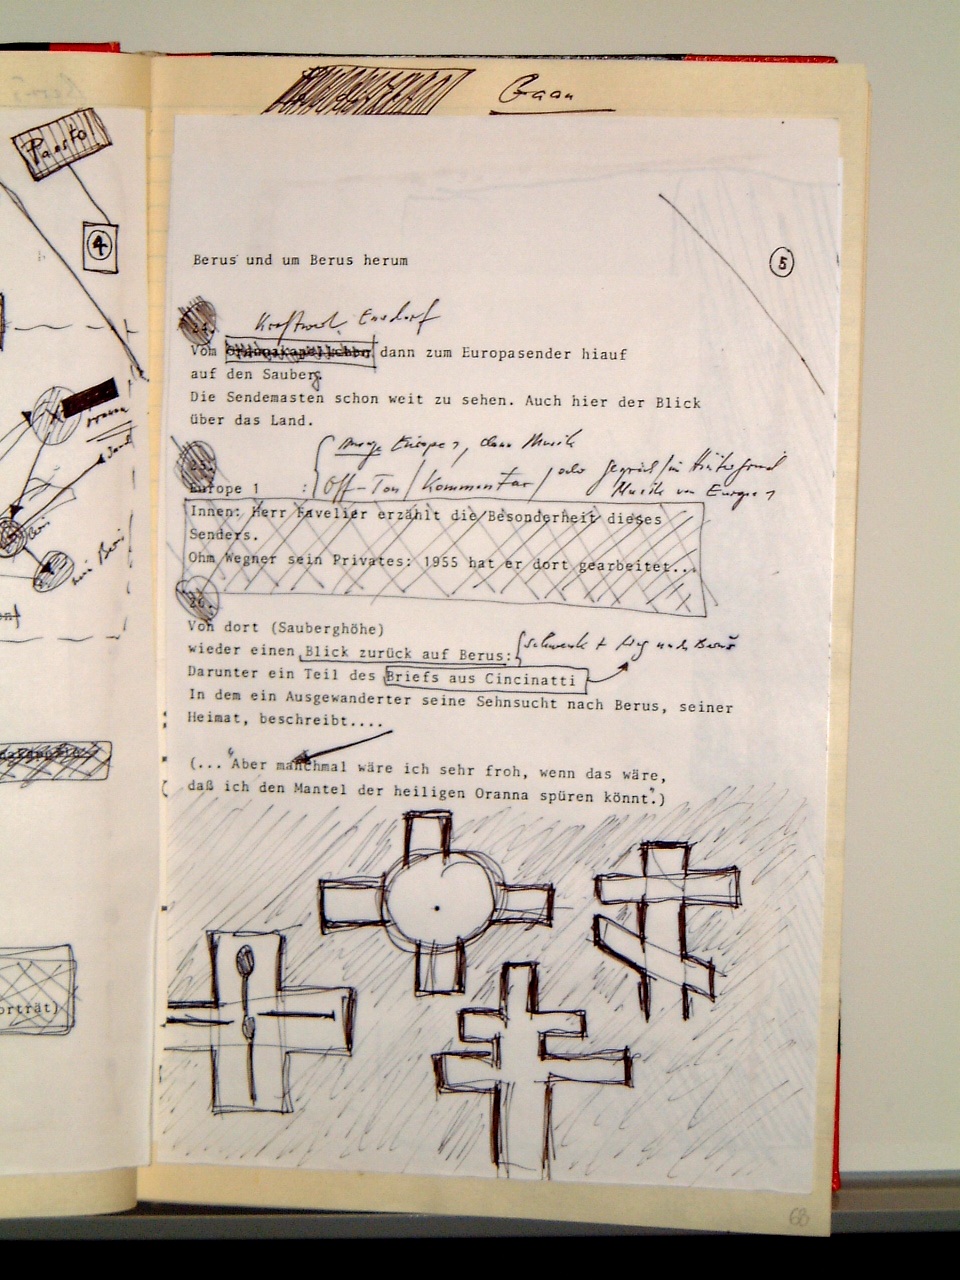 Paesto
4
Berus und um Berus herum
5
24.
Kraftwerk Ensdorf
Vom dann zum Europasender hiauf
auf den Sauberg.
Die Sendemasten schon weit zu sehen. Auch hier der Blick
über das Land.
Europe 1, dann Musik
25.
Off-Ton / Kommentar / oder Gespräch im Hintergrund
Europe 1 :
Musik von Europe 1
Innen: Herr Favelier erzählt die Besonderheit dieses
Senders.
Ohm Wegner sein Privates: 1955 hat er dort gearbeitet...
26.
Von dort (Sauberghöhe)
wieder einen Blick zurück auf Berus:
Schwenk + Weg nach Berus
Darunter ein Teil des Briefs aus Cincinatti
In dem ein Ausgewanderter seine Sehnsucht nach Berus, seiner
Heimat, beschreibt....
(... "Aber manchmal wäre ich sehr froh, wenn das wäre,
daß ich den Mantel der heiligen Oranna spüren könnt".)
orträt)
68